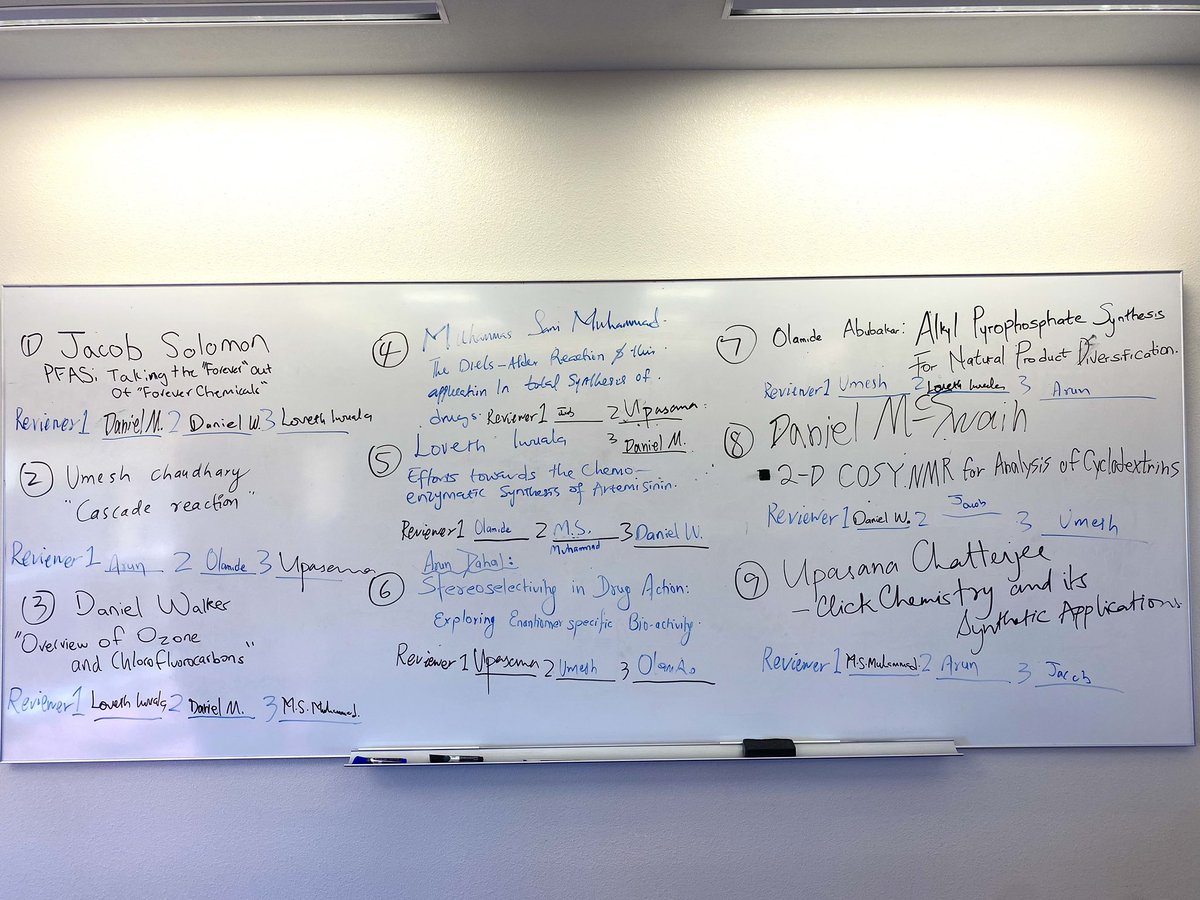 ① Jacob Solomon
PFAS: Taking the "Forever" out
Of "Forever Chemicals"
Reviewer 1 Daniel M. 2 Daniel W. 3 Loveth Iwuala
② Umesh chaudhary
"Cascade reaction"
Reviewer 1 Arun 2 Olamide 3 Upasana
③ Daniel Walker
"Overview of Ozone
and Chlorofluorocarbons"
Reviewer 1 Loveth Iwuala 2 Daniel M. 3 M.S. Muhammad.
④ Muhammad Sani Muhammad.
The Diels-Alder Reaction & their
application In total Synthesis of
drugs. Reviewer 1 2 Upasana.
3 Daniel M.
⑤ Loveth Iwuala
Efforts towards the Chemo-
enzymatic Synthesis of Artemisinin.
Reviewer 1 Olamide 2 M.S. 3 Daniel W.
Muhammad
⑥ Arun Dahal:
Stereoselectivity in Drug Action:
Exploring Enantiomer specific Bio-activity.
Reviewer 1 Upasana 2 Umesh 3
⑦ Olamide Abubakar: Alkyl Pyrophosphate Synthesis
For Natural Product Diversification.
Reviewer 1 Umesh 2 Loveth Iwuala 3 Arun
⑧ Daniel McSwain
2-D COSY NMR for Analysis of Cyclodextrins
Reviewer 1 Daniel W. 2 Jacob 3 Umesh
⑨ Upasana Chatterjee
- Click Chemistry and its
Synthetic Applications
Reviewer 1 M.S. Muhammad. 2 Arun 3 Jacob